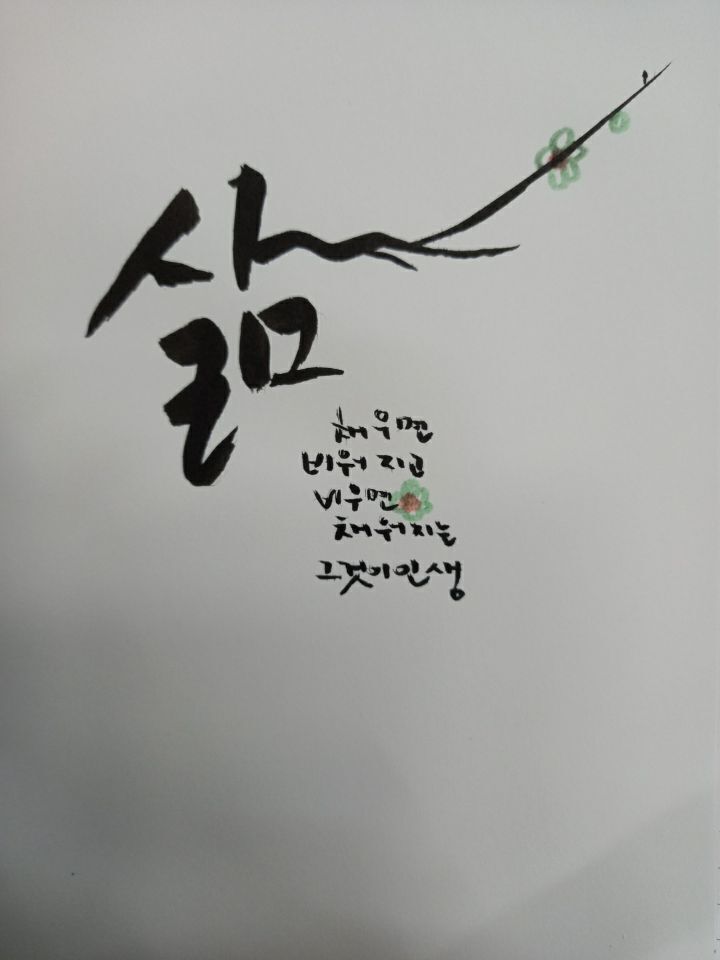 삶
채우면
비워 지고
비우면
채워지는
그것이 인생